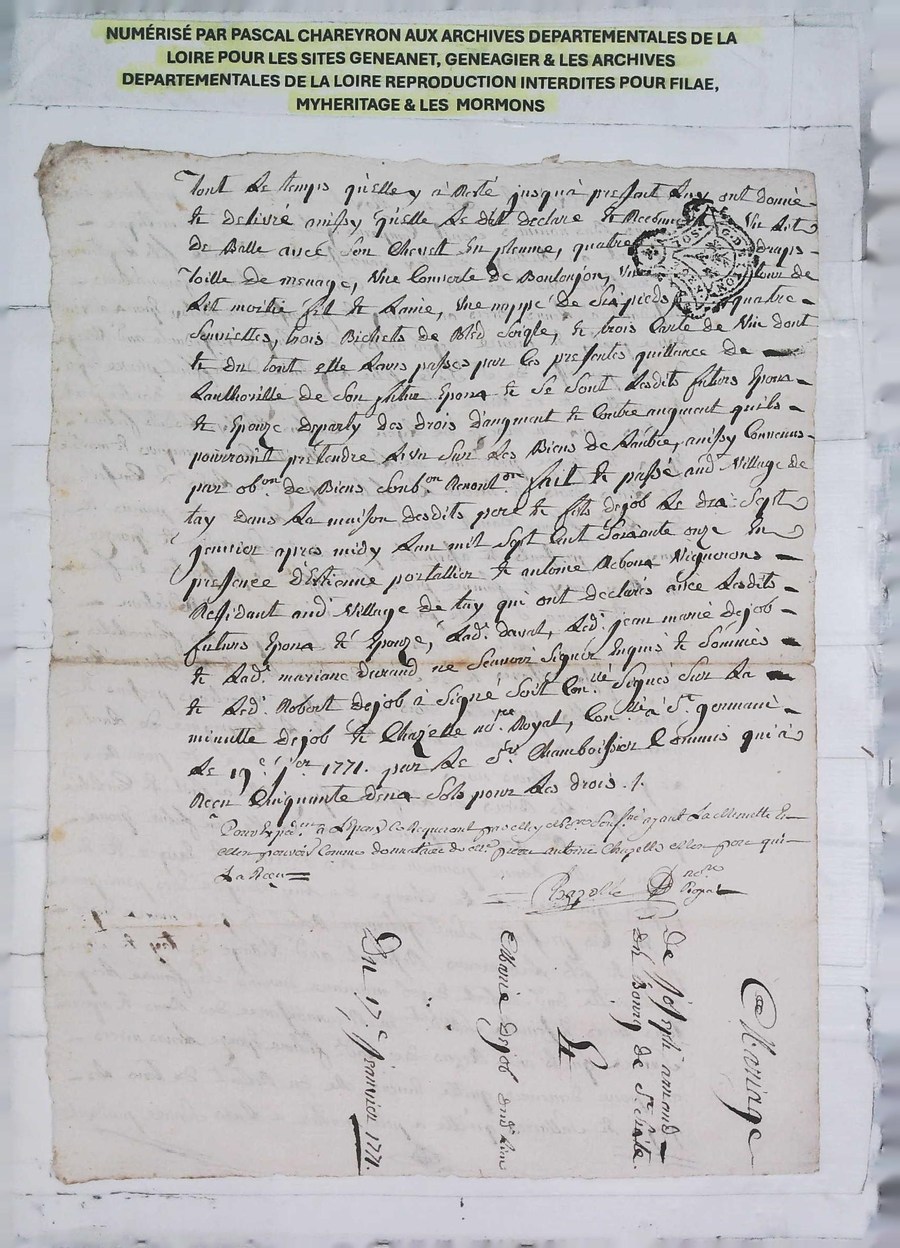 NUMÉRISÉ PAR PASCAL CHAREYRON AUX ARCHIVES DEPARTEMENTALES DE LA
LOIRE POUR LES SITES GENEANET, GENEAGIER & LES ARCHIVES
DEPARTEMENTALES DE LA LOIRE REPRODUCTION INTERDITES POUR FILAE,
MYHERITAGE & LES MORMONS
Tout Le temps qu'elle y à Resté jusqu'à present Luy ont donné
et delivré aussy qu'elle Le dit declare et Vn Lit
de Balle avec Son Chevest En plume, quatre draps
Toille de menage, Vne Couverte de tour de
Lit moitié fil et Laine, Vne nappe de Six pieds quatre
Serviettes, trois Bichets de Bled Seigle, et trois Carte de Vin dont
et du tout elle Leurs passes par Les presentes quittance de
Lauthorité de Son futur Epoux et Se Sont Lesdits futurs Epoux
et Epouze departy des drois d'augment et Contre augment qu'ils
pourroint pretendre Sur Les Biens de Lautre, aussy Convenus
par obon de Biens Renonton fait et passé aud Village de
tay dans La maison desdits pere et fils dejob Le dix Sept
janvier apres midy Lan mil Sept Cent Soixante onze En
presence d'Estienne portallier et antoine Vignerons
Residant aud Village de tay qui ont declarés avec Lesdits
futurs Epoux et Epouze, Lad. daval, Led. jean marie dejob
et Lad. mariane durand ne Scavoir Signer Enquis et Sommés
et Led. Robert dejob à Signé Soit Con.llé Signés Sur La
minutte dejob et Chazelle no.re Royal, Con.llé à St. germain
Le 19.e j.er 1771. par Le Sr. Chamboissier Commis qui à
Recu Cinquante deux Sols pour Les drois ./.
La Minutte
pouvoir Comme donnataire de pierre antoine Chazelle Son pere qui
La Recu
Chazelle no.re
Royal
Mariage
De joseph amand
du Bourg de St.
Et
Marie Dejob
Du 17.e janvier 1771.